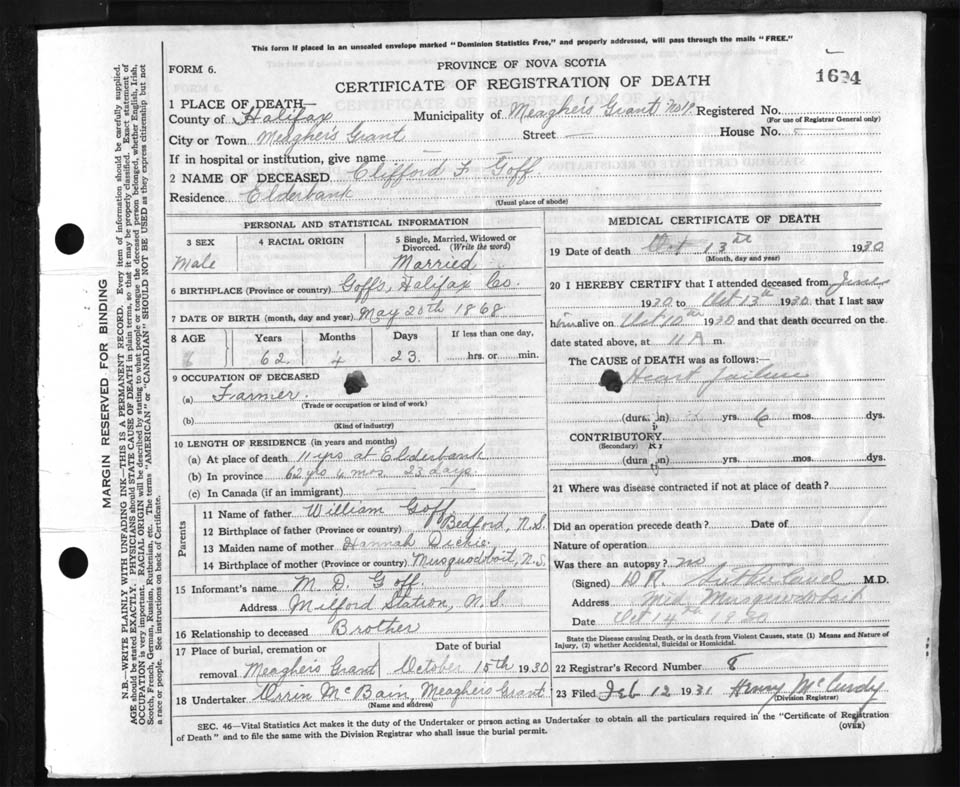 This form if placed in an unsealed envelope marked "Dominion Statistics Free," and properly addressed, will pass through the mails "FREE."
FORM 6.
PROVINCE OF NOVA SCOTIA
CERTIFICATE OF REGISTRATION OF DEATH
1694
1 PLACE OF DEATH—
County of Halifax Municipality of Meagher's Grant No 19 Registered No.
(For use of Registrar General only)
City or Town Meagher's Grant Street — House No. —
If in hospital or institution, give name —
2 NAME OF DECEASED Clifford F. Goff.
Residence Elderbank
(Usual place of abode)
PERSONAL AND STATISTICAL INFORMATION
3 SEX 4 RACIAL ORIGIN 5 Single, Married, Widowed or Divorced. (Write the word)
Male Married
6 BIRTHPLACE (Province or country) Goffs, Halifax Co.
7 DATE OF BIRTH (month, day and year) May 20th 1868
8 AGE Years Months Days If less than one day,
62 4 23 hrs. or min.
9 OCCUPATION OF DECEASED
(a) Farmer.
(Trade or occupation or kind of work)
(b)
(Kind of industry)
10 LENGTH OF RESIDENCE (in years and months)
(a) At place of death 11 yrs at Elderbank
(b) In province 62 yrs 4 mos. 23 days.
(c) In Canada (if an immigrant)
Parents
11 Name of father William Goff
12 Birthplace of father (Province or country) Bedford, N.S.
13 Maiden name of mother Hannah Dickie
14 Birthplace of mother (Province or country) Musquodoboit, N.S.
15 Informant's name M. D. Goff.
Address Milford Station, N.S.
16 Relationship to deceased Brother
17 Place of burial, cremation or removal Date of burial
Meagher's Grant October 15th 1930
18 Undertaker Orrin McBain, Meagher's Grant
(Name and address)
MEDICAL CERTIFICATE OF DEATH
19 Date of death Oct 13th 1930
(Month, day and year)
20 I HEREBY CERTIFY that I attended deceased from June
1930 to Oct 13th 1930 that I last saw
him alive on Oct 10th 1930 and that death occurred on the
date stated above, at 11 A m.
The CAUSE of DEATH was as follows:—
Heart failure
(duration) yrs. 6 mos. dys.
CONTRIBUTORY
(Secondary)
(duration) yrs. mos. dys.
21 Where was disease contracted if not at place of death?
Did an operation precede death? Date of
Nature of operation
Was there an autopsy? no
(Signed) D.R. Sutherland M.D.
Address Mid. Musquodoboit
Date Oct 14th 1930
State the Disease causing Death, or in death from Violent Causes, state (1) Means and Nature of
Injury, (2) whether Accidental, Suicidal or Homicidal.
22 Registrar's Record Number 8
23 Filed Feb 12 1931 Henry McCurdy
(Division Registrar)
SEC. 46—Vital Statistics Act makes it the duty of the Undertaker or person acting as Undertaker to obtain all the particulars required in the "Certificate of Registration
of Death" and to file the same with the Division Registrar who shall issue the burial permit.
(OVER)
MARGIN RESERVED FOR BINDING
N.B.—WRITE PLAINLY WITH UNFADING INK—THIS IS A PERMANENT RECORD. Every item of information should be carefully supplied.
AGE should be stated EXACTLY. PHYSICIANS should STATE CAUSE OF DEATH in plain terms, so that it may be properly classified. Exact statement of
OCCUPATION is very important. RACIAL ORIGIN will be described by stating to what people or tongue the deceased person belonged, whether English, Irish,
Scotch, French, German, Russian, Ruthenian, etc. The terms "AMERICAN" or "CANADIAN" SHOULD NOT BE USED as they express citizenship but not
a race or people. See instructions on back of Certificate.